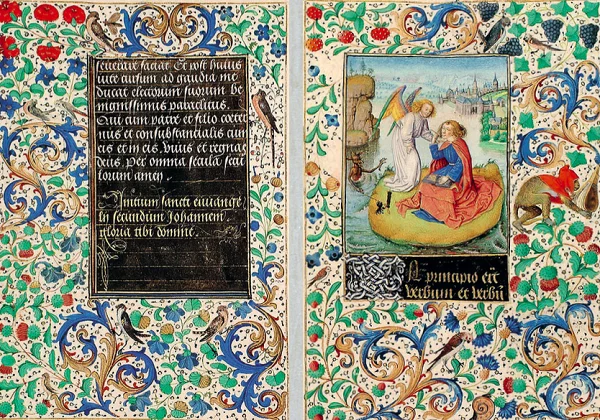 seuerare faciat. Et post huius
vite cursum ad gaudia me
ducat electorum suorum be
nignissimus paraclitus.
Qui cum patre et filio coeter
nus et consubstantialis cum
eis et in eis. viuit et regnat
deus. Per omnia secula secu
lorum amen.
Initium sancti euuange
lij secundum Johannem.
gloria tibi domine.
IN principio erat
verbum et verbū